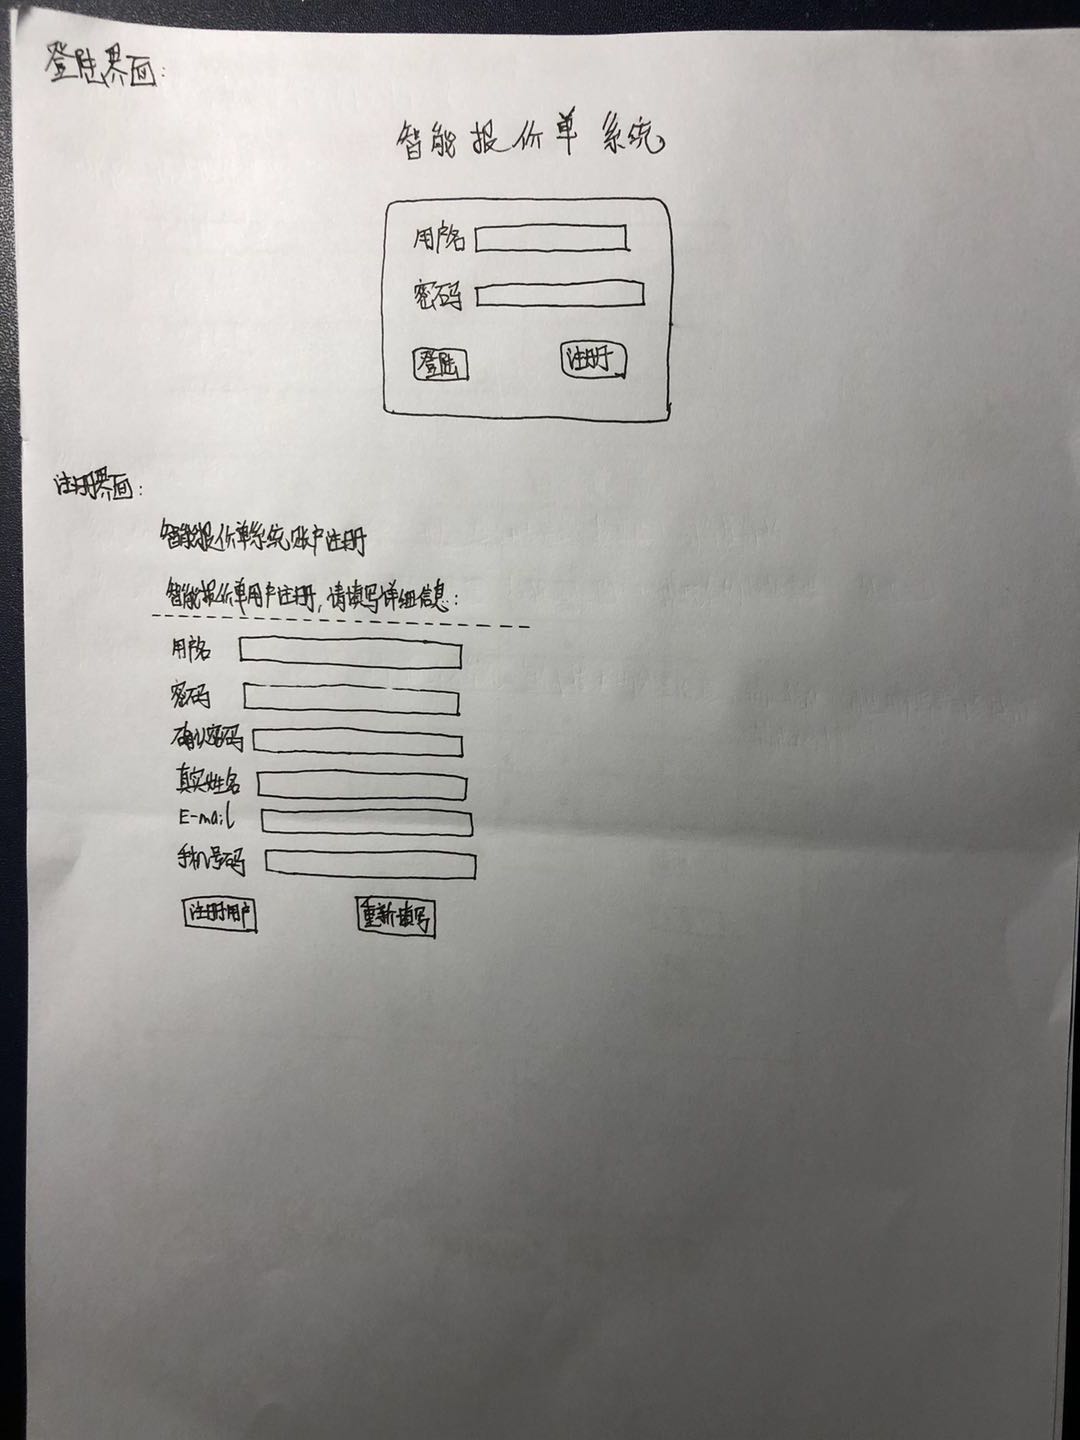 登陆界面:
智能报价单系统
用户名
密码
登陆 注册
注册界面:
智能报价单系统账户注册
智能报价单用户注册,请填写详细信息:
用户名
密码
确认密码
真实姓名
E-mail
手机号码
注册用户 重新填写